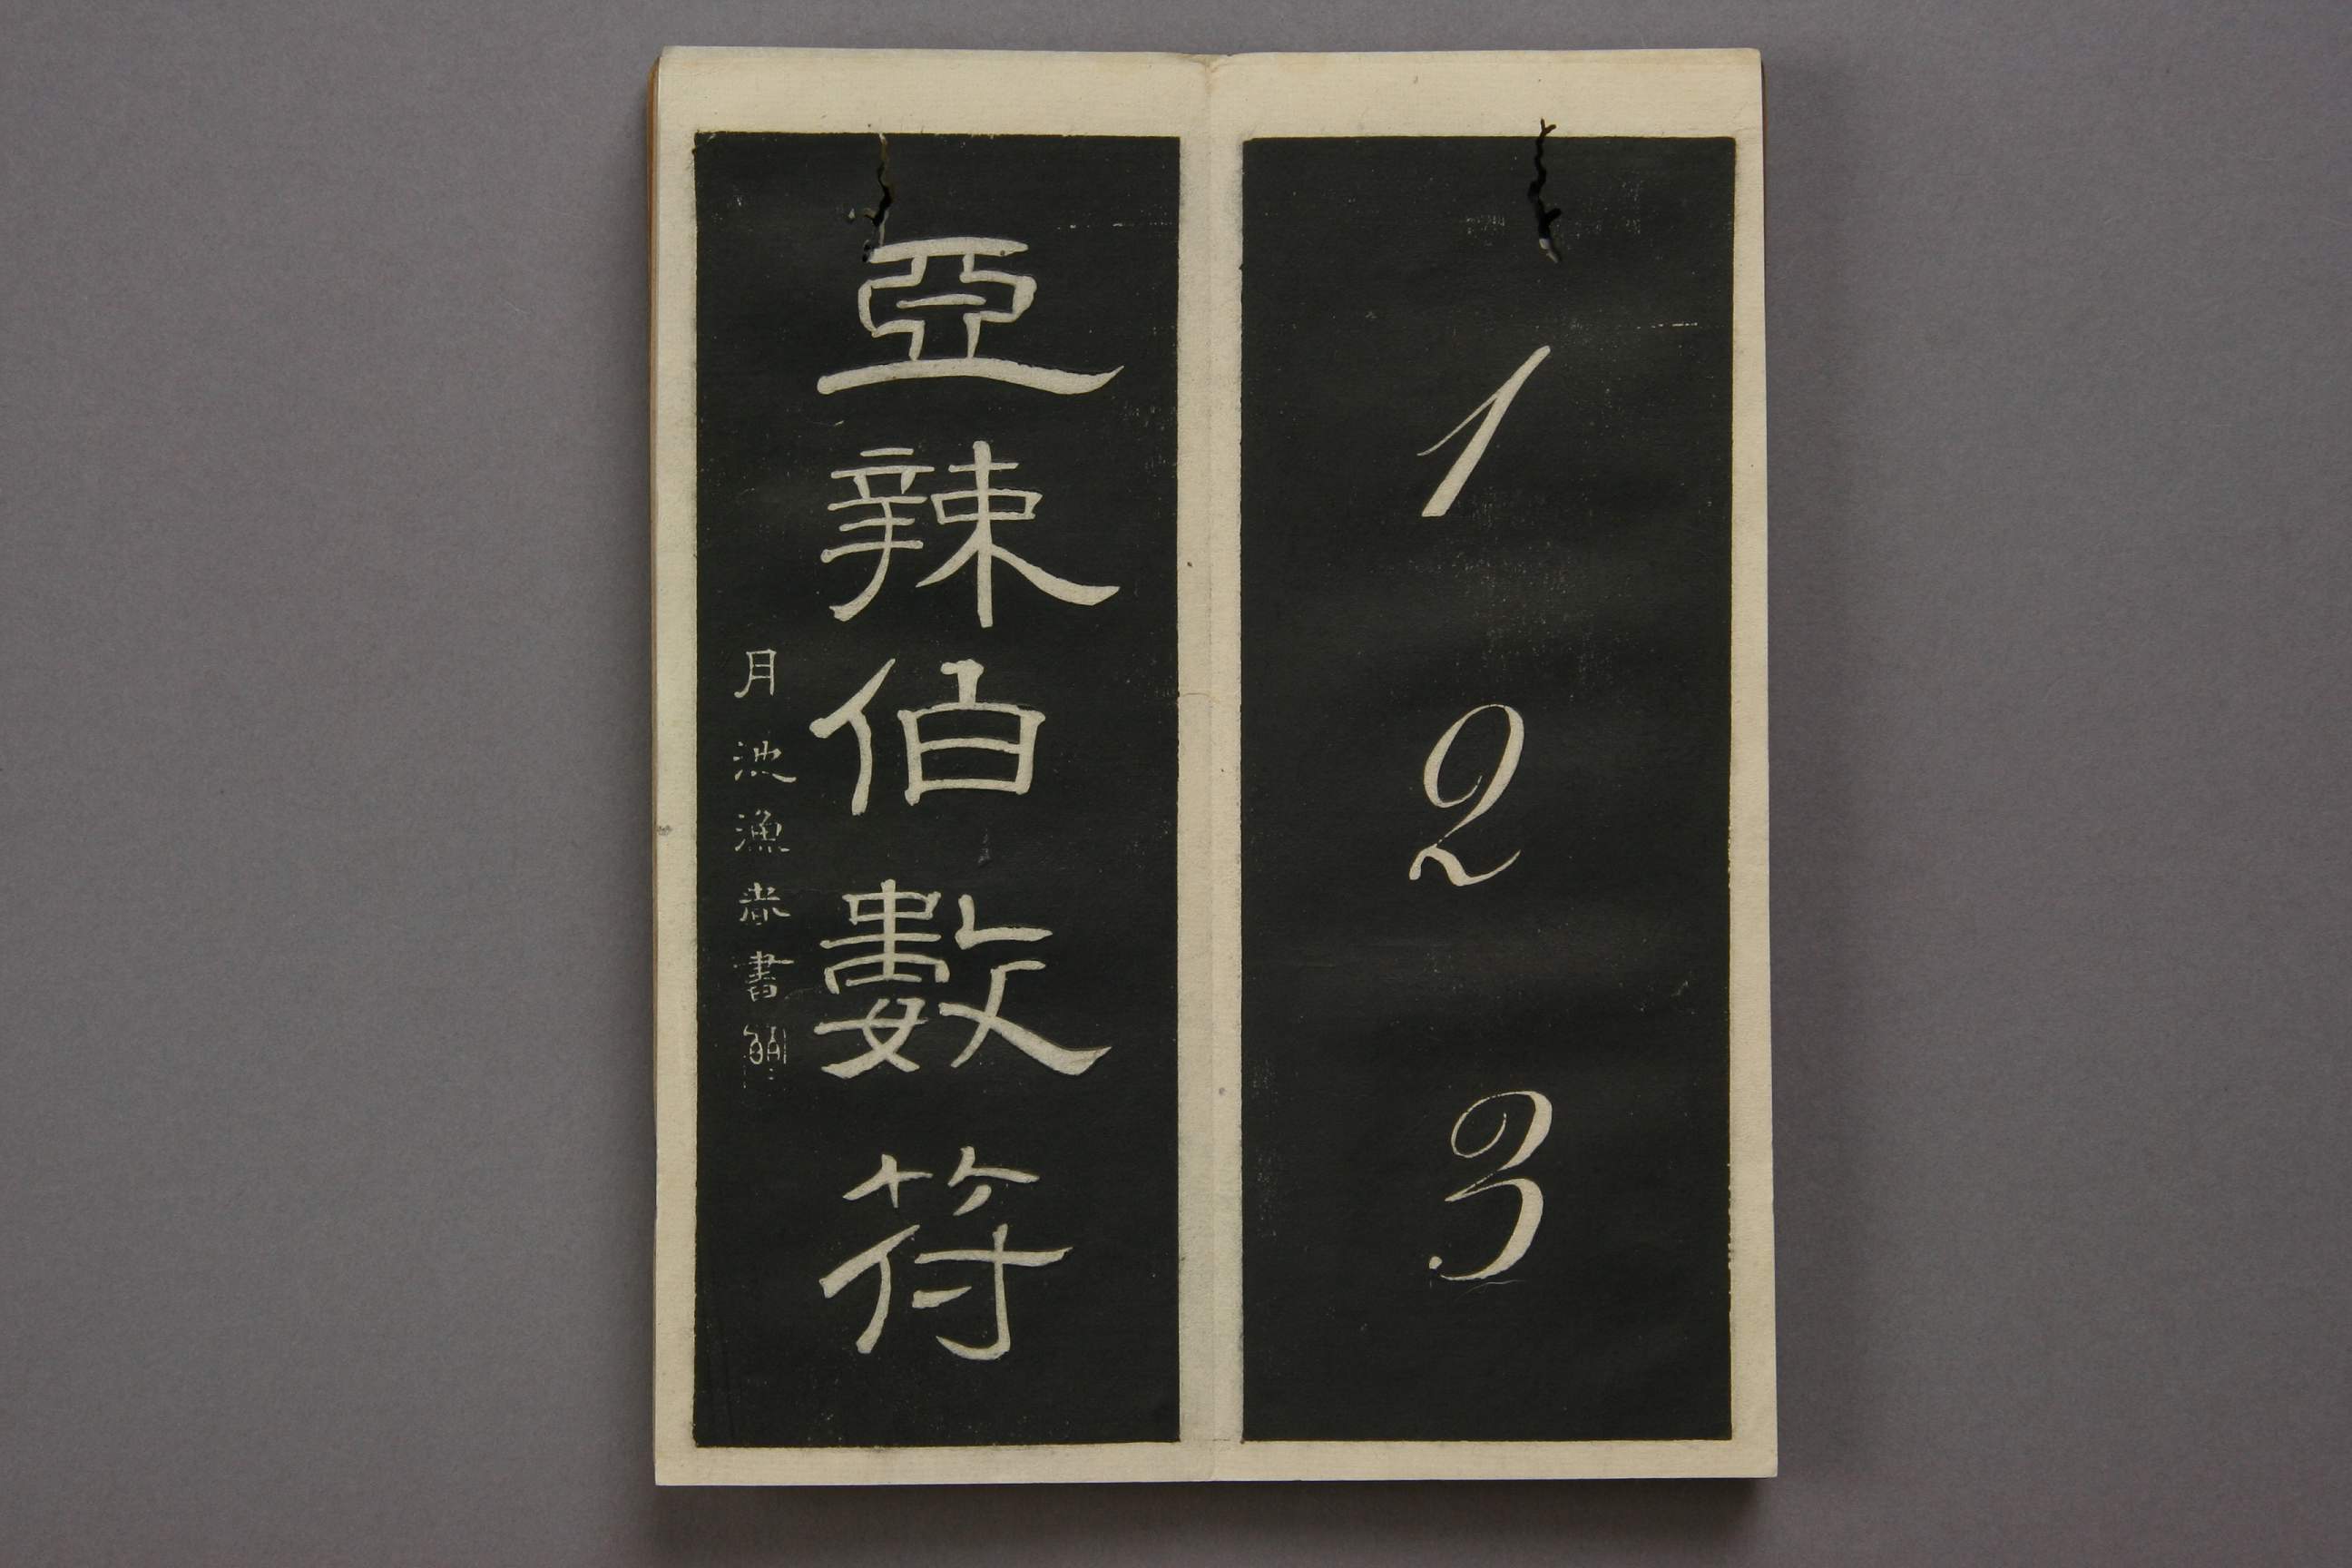 1 2 3
亞辣伯數符
月池漁恭書